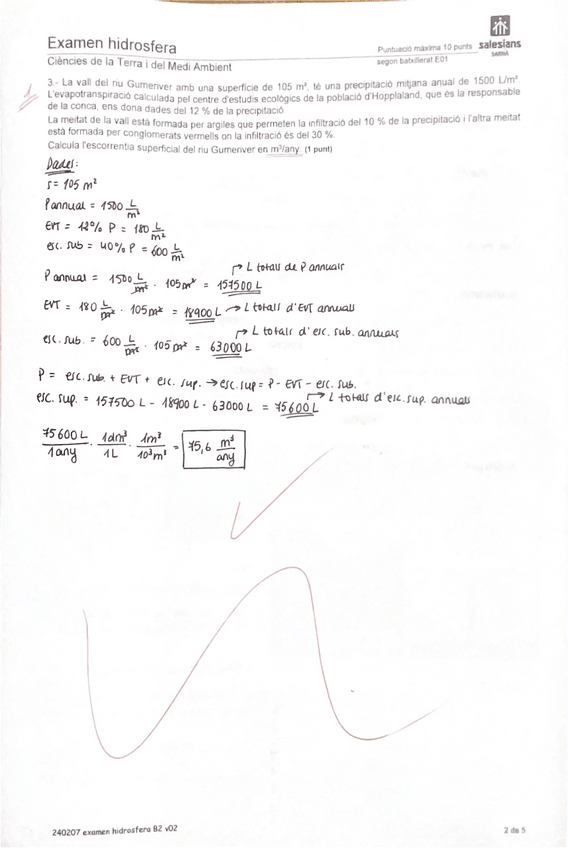 Examen hidrosfera
Ciències de la Terra i del Medi Ambient
Puntuació màxima 10 punts
segon batxillerat E01
salesians
SARRIÀ
1
3.- La vall del riu Gumenver amb una superfície de 105 m², té una precipitació mitjana anual de 1500 L/m²
L'evapotranspiració calculada pel centre d'estudis ecològics de la població d'Hopplaland, que és la responsable
de la conca, ens dona dades del 12 % de la precipitació
La meitat de la vall està formada per argiles que permeten la infiltració del 10 % de la precipitació i l'altra meitat
està formada per conglomerats vermells on la infiltració és del 30 %.
Calcula l'escorrentia superficial del riu Gumenver en m³/any. (1 punt)
Dades:
S = 105 m²
Pannual = 1500 L/m²
EVT = 12% P = 180 L/m²
esc. sub = 40% P = 600 L/m²
P annual = 1500 L/m² · 105 m² = 157500 L → L totals de P annuals
EVT = 180 L/m² · 105 m² = 18900 L → L totals d'EVT annuals
esc. sub. = 600 L/m² · 105 m² = 63000 L → L totals d'esc. sub. annuals
P = esc. sub. + EVT + esc. sup. → esc. sup = P - EVT - esc. sub.
esc. sup. = 157500 L - 18900 L - 63000 L = 75600 L → L totals d'esc. sup. annuals
75600 L/1 any · 1dm³/1L · 1m³/10³m³ = 75,6 m³/any
240207 examen hidrosfera B2 v02
2 de 5